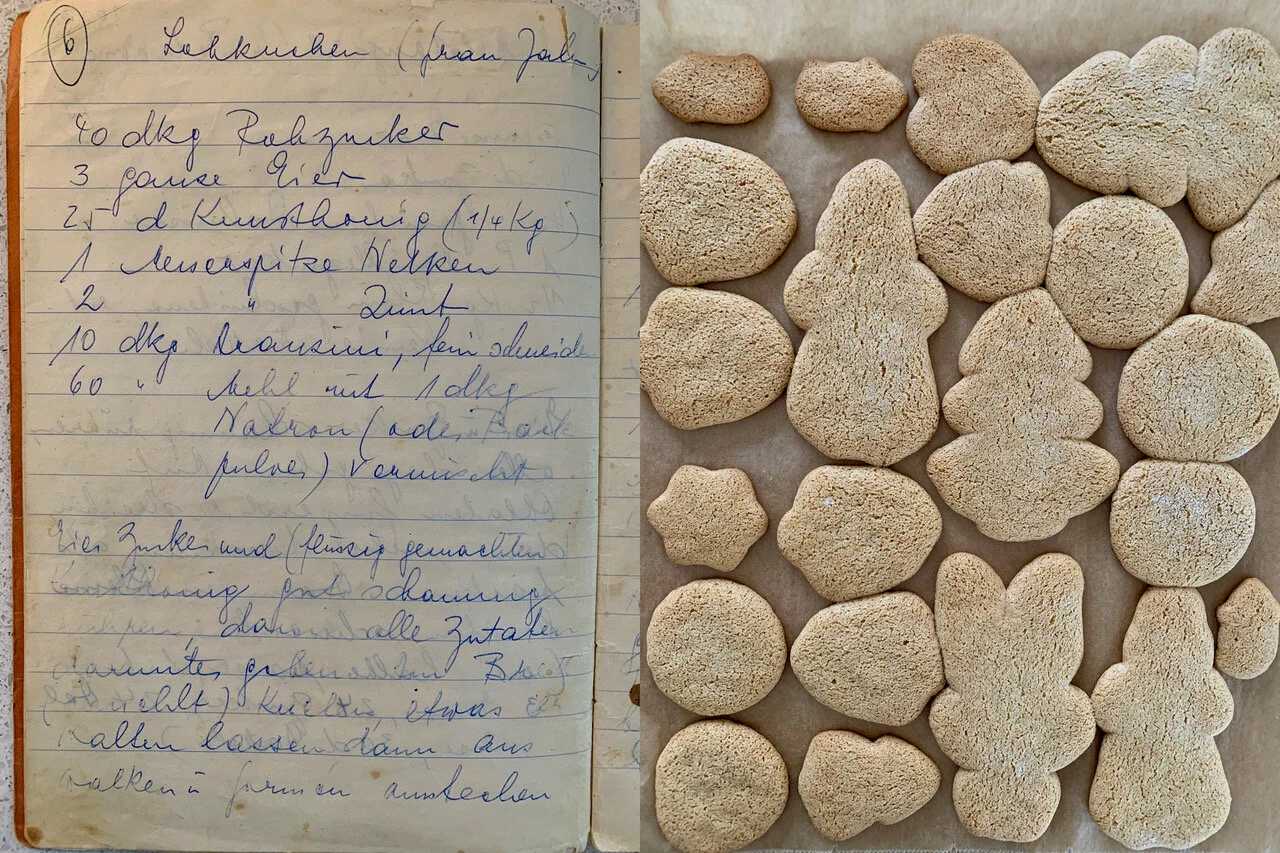 6 Lebkuchen (Frau
40 dkg Rohzucker
3 ganze Eier
25 d Kunsthonig (1/4 Kg)
1 Messerspitze Nelken
2 " Zimt
10 dkg Aranzini, fein schneiden
60 " Mehl mit 1 dkg
Natron (oder Back
pulver) vermischt
Eier Zucker und (flüssig gemachten
Kunsthonig gut schaumig
dann alle Zutaten
darunter geben Brett
(Mehl) kneten, etwas
rasten lassen dann aus
walken u Formen ausstechen